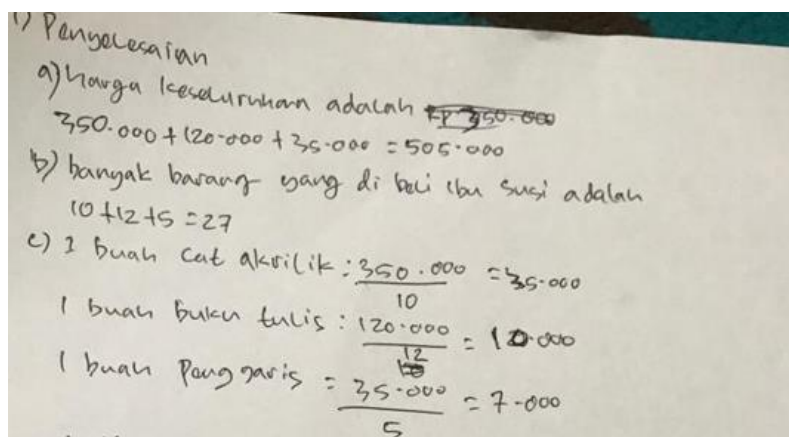 1) Penyelesaian
a) harga keseluruhan adalah Rp 350.000
350.000 + 120.000 + 35.000 = 505.000
b) banyak barang yang di beli ibu susi adalah
10 + 12 + 5 = 27
c) 1 buah cat akrilik : 350.000 = 35.000
10
1 buah buku tulis : 120.000 = 10.000
12
1 buah Penggaris = 35.000 = 7.000
5